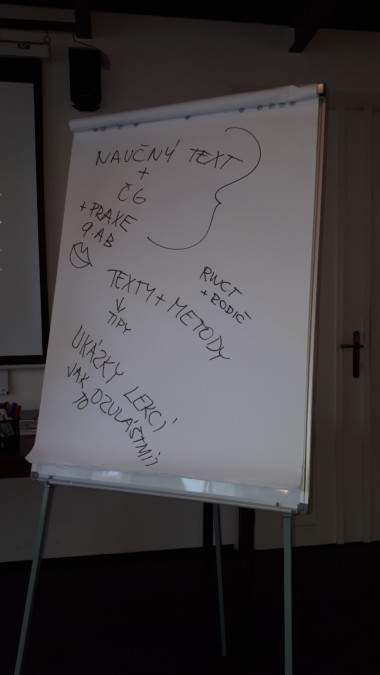 NAUČNÝ TEXT
+
ČG
+ PRAXE
9.AB
RWCT
+ RODIČ
TEXTY + METODY
↓
TIPY
UKÁZKY LEKCÍ
JAK
TO